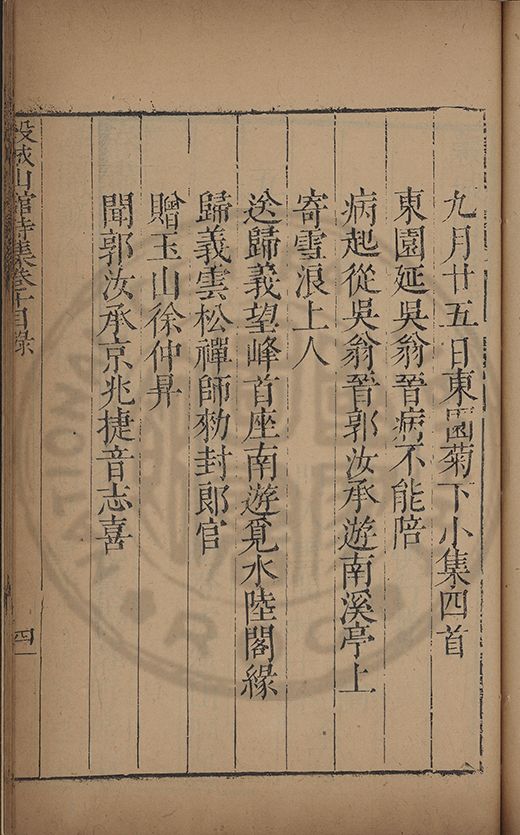 九月廿五日東園菊下小集四首
東園延吳翁晉病不能陪
病起從吳翁晉郭汝承遊南溪亭上
寄雪浪上人
送歸義望峰首座南遊覓水陸閣緣
歸義雲松禪師勑封郎官
贈玉山徐仲昇
聞郭汝承京兆捷音志喜
山館詩集卷十目錄
四